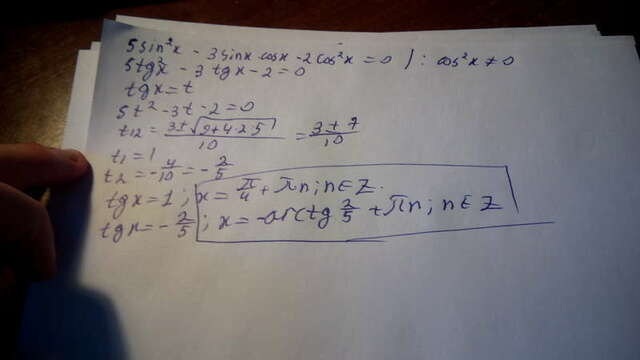 5sin²x - 3sinx cosx - 2cos²x = 0 | : cos²x ≠ 0
5tg²x - 3tgx - 2 = 0
tgx = t
5t² - 3t - 2 = 0
t₁₂ = (3 ± √(9+4·2·5))/10 = (3 ± 7)/10
t₁ = 1
t₂ = -4/10 = -2/5
tgx = 1; x = π/4 + πn; n∈Z.
tgx = -2/5; x = -arctg 2/5 + πn; n∈Z